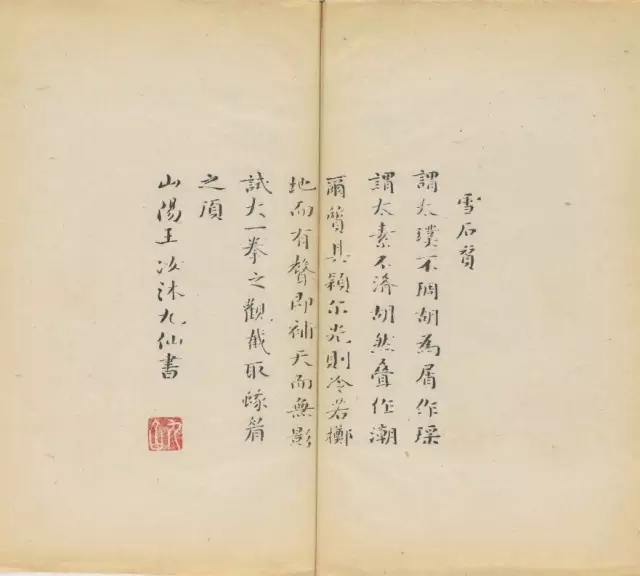 雪石贊
謂太璞不琱胡為屑作琛
謂太素不濟胡然疊作潮
爾質具穎尔光則冷若擲
地而有聲即補天而無影
試大一拳之觀截取峨眉
之頂
山陽王汝沐九仙書